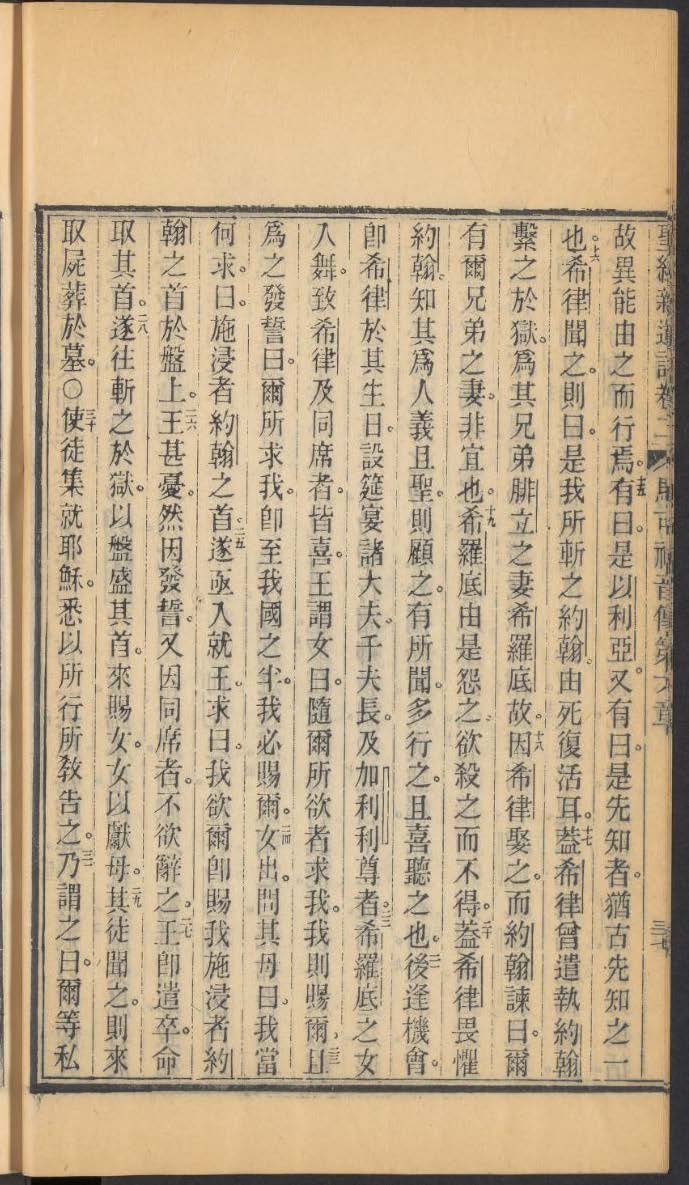 聖經新遺詔卷二 馬可福音傳第六章 三七
故異能由之而行焉。十五有曰。是以利亞。又有曰。是先知者。猶古先知之一
也。十六希律聞之。則曰。是我所斬之約翰。由死復活耳。十七蓋希律曾遣執約翰
繫之於獄。爲其兄弟腓立之妻希羅底故。十八因希律娶之。而約翰諫曰。爾
有爾兄弟之妻。非宜也。十九希羅底由是怨之。欲殺之而不得。二十蓋希律畏懼
約翰。知其爲人義且聖。則顧之。有所聞。多行之。且喜聽之也。二一後逢機會。
卽希律於其生日。設筵宴諸大夫。千夫長。及加利利尊者。二二希羅底之女
入舞。致希律及同席者。皆喜。王謂女曰。隨爾所欲者求我。我則賜爾。二三且
爲之發誓曰。爾所求我。卽至我國之半。我必賜爾。二四女出。問其母曰。我當
何求。曰。施浸者約翰之首。二五遂亟入就王。求曰。我欲爾卽賜我施浸者約
翰之首於盤上。二六王甚憂。然因發誓。又因同席者。不欲辭之。二七王卽遣卒。命
取其首。二八遂往斬之於獄。以盤盛其首。來賜女。女以獻母。二九其徒聞之。則來
取屍葬於墓。○三十使徒集就耶穌。悉以所行所教告之。三一乃謂之曰。爾等私